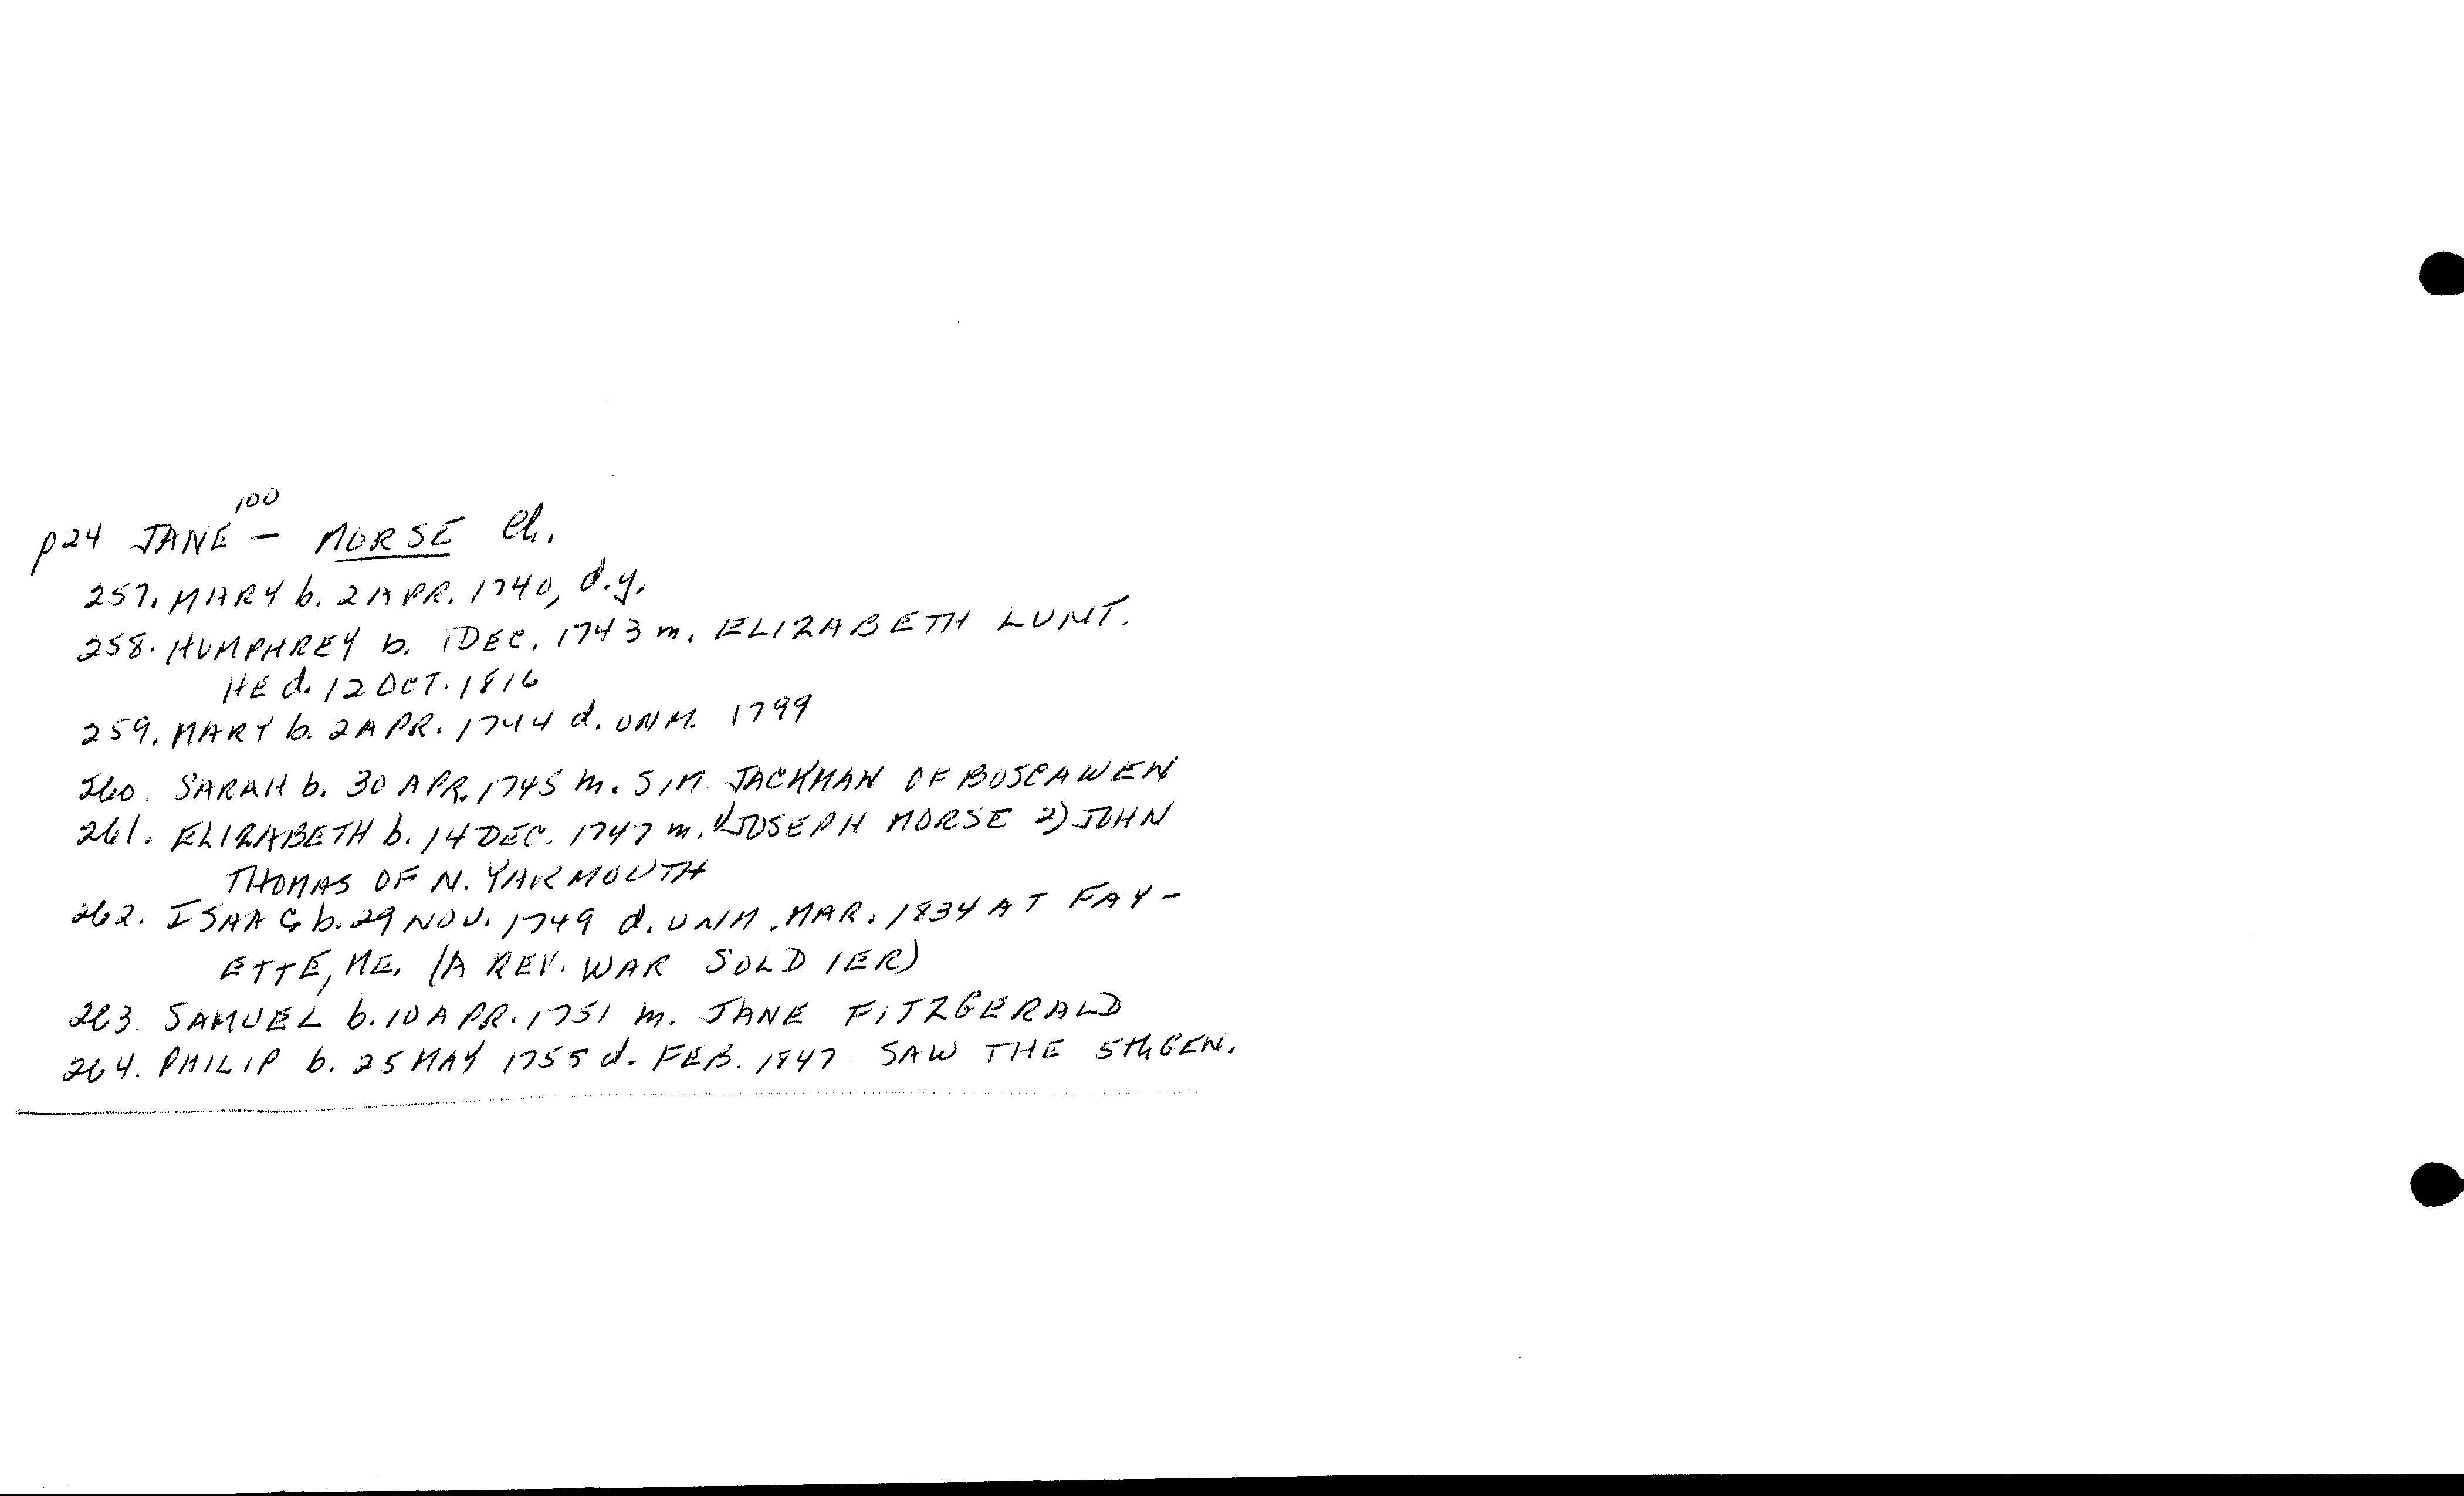 p24 JANE¹⁰⁰ – MORSE Ch.
257. MARY b. 2 APR. 1740, d.y.
258. HUMPHREY b. 1 DEC. 1743 m. ELIZABETH LUNT.
HE d. 12 OCT. 1816
259. MARY b. 2 APR. 1744 d. UNM. 1799
260. SARAH b. 30 APR. 1745 m. SIM. JACKMAN OF BOSCAWEN
261. ELIZABETH b. 14 DEC. 1747 m. 1) JOSEPH MORSE 2) JOHN
THOMAS OF N. YARMOUTH
262. ISAAC b. 29 NOV. 1749 d. UNM. MAR. 1834 AT FAY-
ETTE, ME. (A REV. WAR SOLDIER)
263. SAMUEL b. 10 APR. 1751 m. JANE FITZGERALD
264. PHILIP b. 25 MAY 1755 d. FEB. 1847 SAW THE 5th GEN.